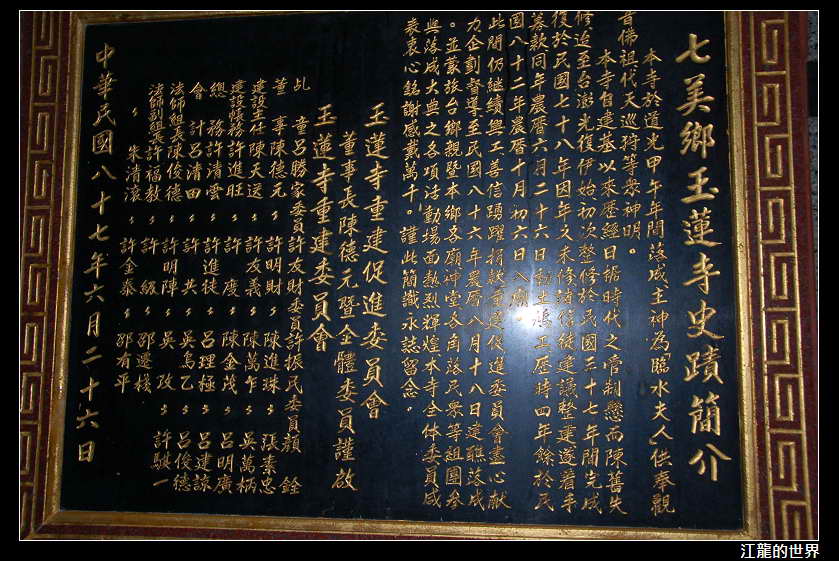 七美鄉玉蓮寺史蹟簡介
本寺於道光甲午年間落成、主神為臨水夫人、供奉觀
音佛祖代天巡狩等眾神明。
本寺自建基以來歷經日据時代之管制懸而陳舊失
修迨至台澎光復伊始初次整修於民國三十七年間完成
復於民國七十八年因年久未修諸信徒建議整建遂着手
募款同年農曆六月二十六日動土鳩工歷時四年餘於民
國八十二年農曆十月初六日入廟。
此間仍繼續興工善信踴躍捐款重建促進委員會盡心献
力企劃督導至民國八十六年農曆八月十八日建醮落成
。並蒙旅台鄉親暨本鄉各廟神堂各角落民眾等組團參
與落成大典之各項活動場面熱烈輝煌本寺全体委員咸
表衷心銘謝感戴萬千。謹此簡識永誌留念。
玉蓮寺重建促進委員會
董事長陳德元暨全體委員謹啟
玉蓮寺重建委員會
乩童呂勝家委員許友財委員許振民委員顏銓
董事陳德元〃許明財〃陳進珠〃張素忠
建設主任陳天送〃許友義〃陳萬乍〃吳萬柄
建設帳務許進旺〃許度〃陳金茂〃呂明廣
總務許清雲〃許進徒〃呂理極〃呂建諒
會計呂清田〃許共〃吳烏乙〃呂俊德
法師組長陳俊德〃許明陣〃吳政〃許騏一
法師副組長許福教〃許級〃鄂遷棧
〃朱清滾〃許金泰〃鄂有平
中華民國八十七年六月二十六日
江龍的世界